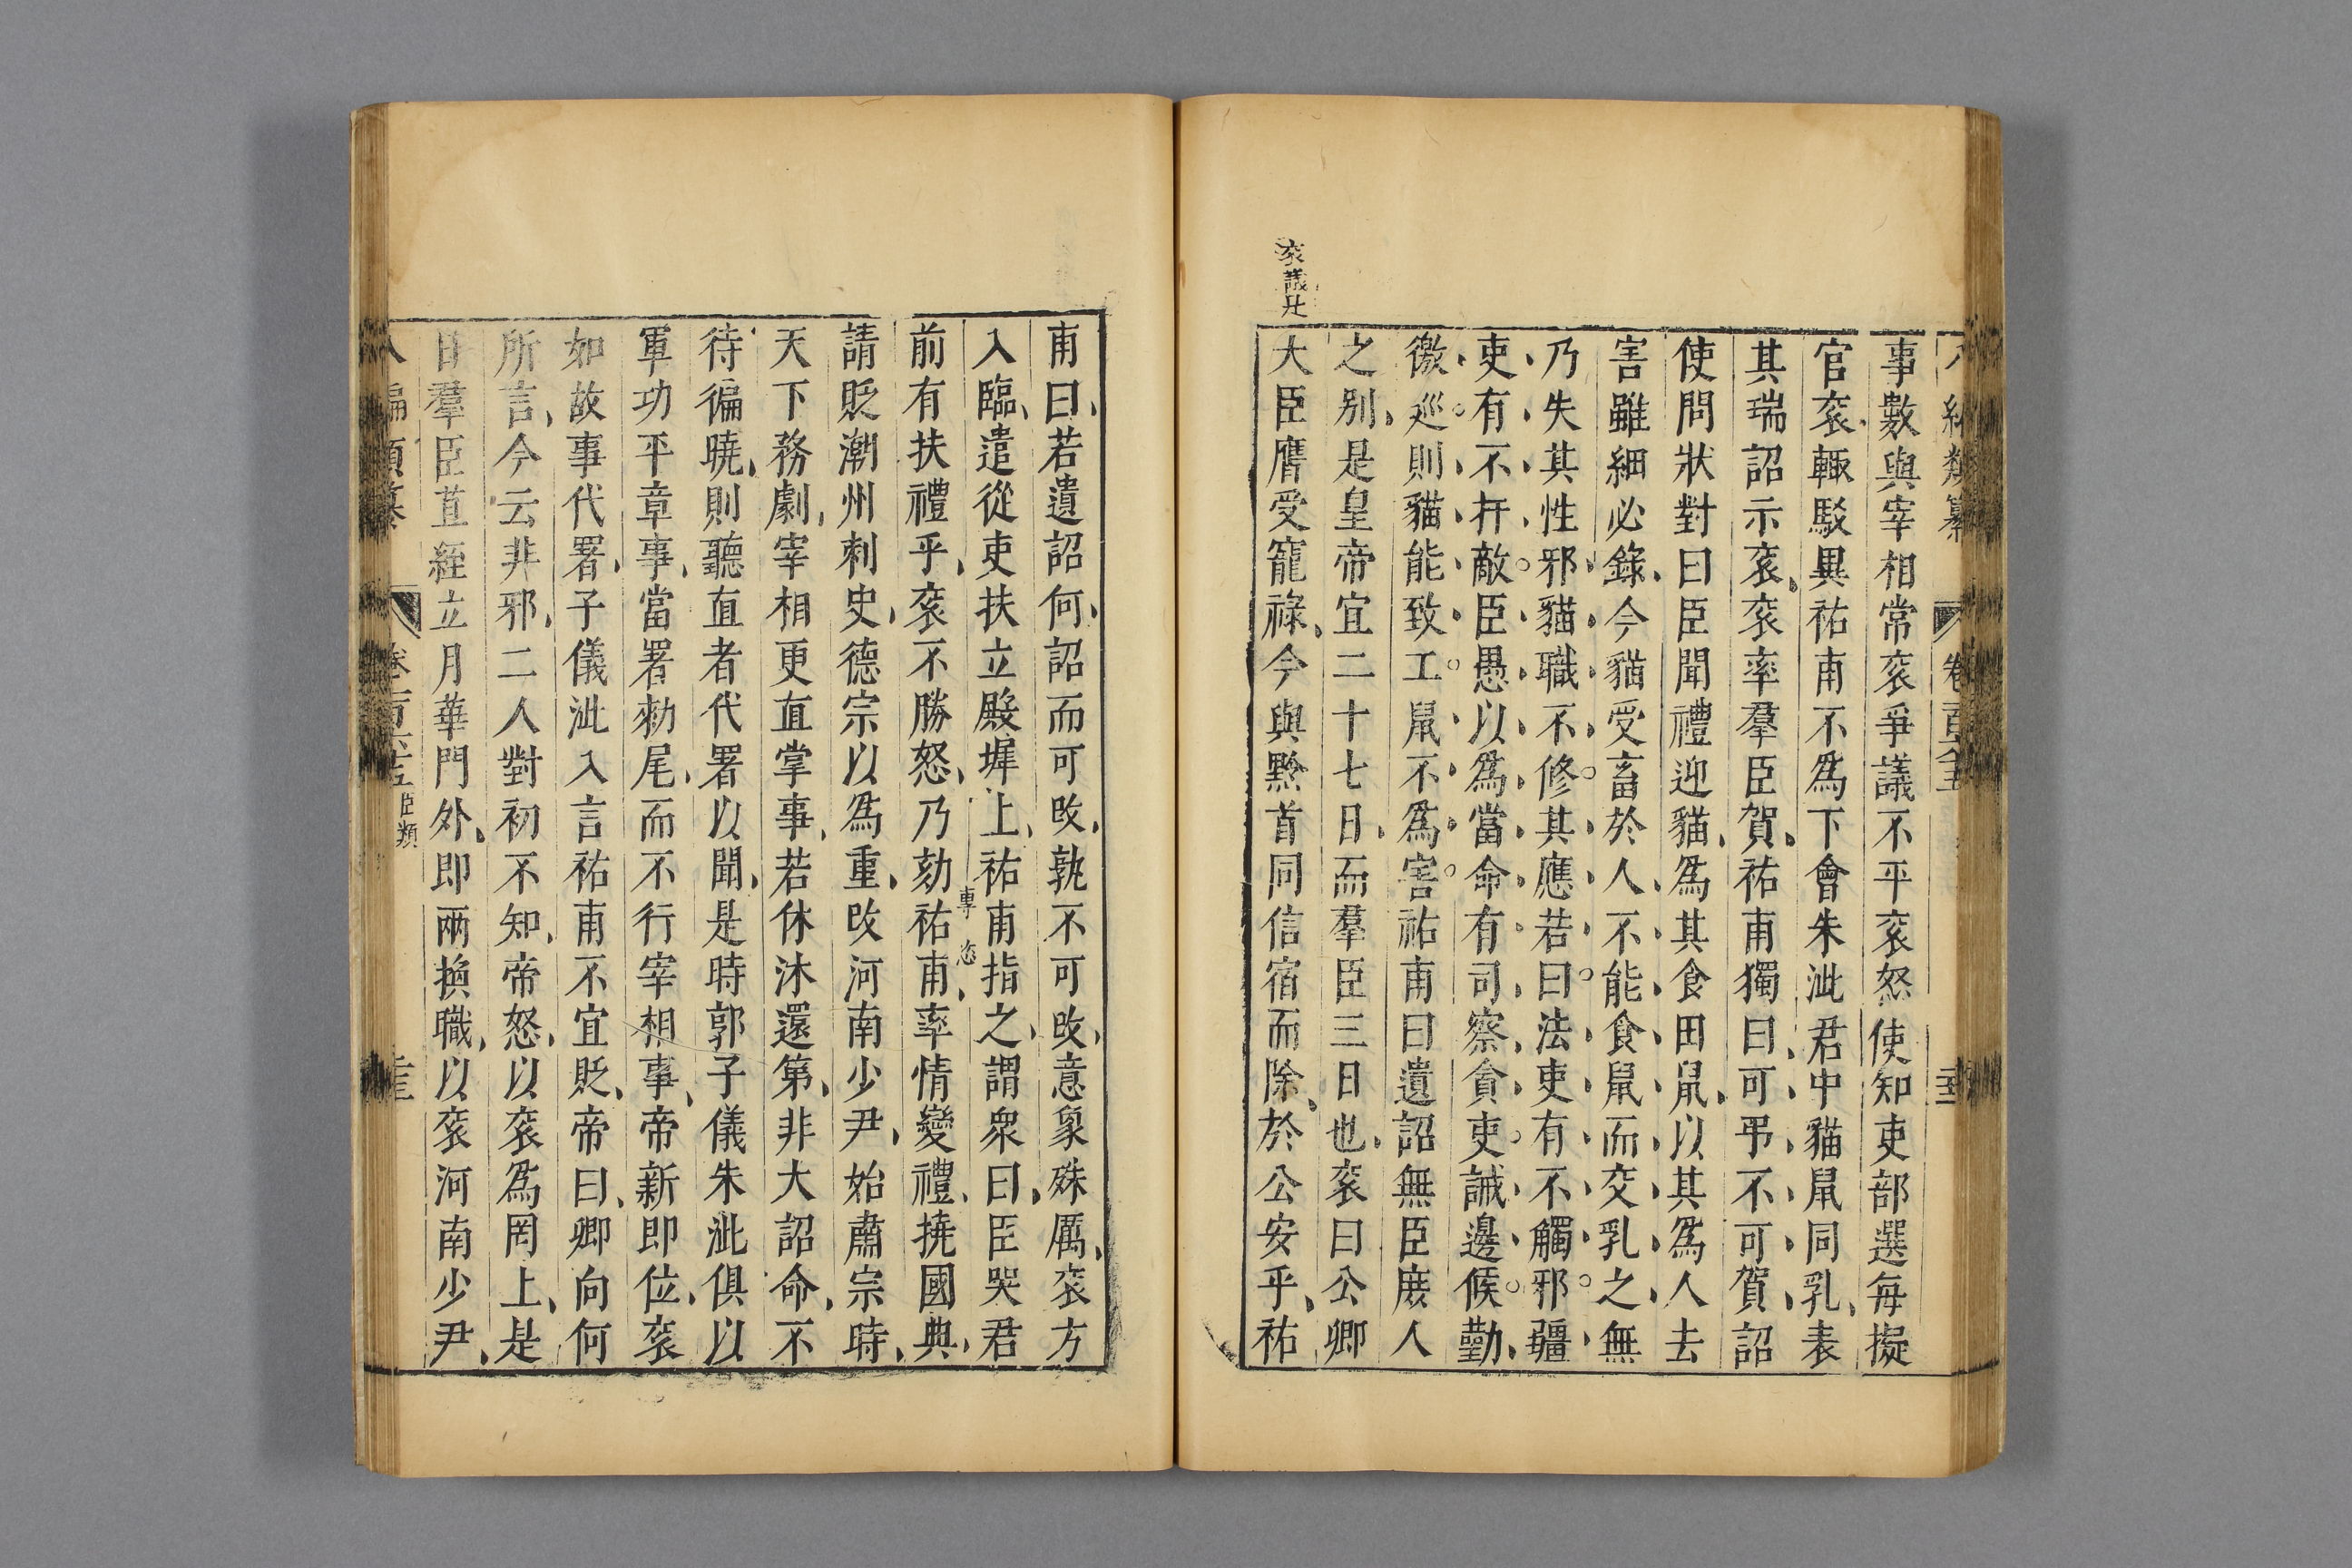 事數與宰相常袞爭議不平袞怒使知吏部選每擬
官袞輒駁異祐甫不爲下會朱泚軍中猫鼠同乳表
其瑞詔示袞袞率羣臣賀祐甫獨曰可弔不可賀詔
使問狀對曰臣聞禮迎貓爲其食田鼠以其爲人去
害雖細必錄今貓受畜於人不能食鼠而交乳之無
乃失其性邪貓職不修其應若曰法吏有不觸邪疆
吏有不扞敵臣愚以爲當命有司察貪吏誡邊候勤
徼巡則貓能致工鼠不爲害祐甫曰遺詔無臣庶人
之别是皇帝宜二十七日而羣臣三日也袞曰公卿
袞議是
大臣膺受寵祿今與黔首同信宿而除於公安乎祐
甫曰若遺詔何詔而可改孰不可改意象殊厲袞方
入臨遣從吏扶立殿墀上祐甫指之謂衆曰臣哭君
專恣
前有扶禮乎袞不勝怒乃劾祐甫率情變禮撓國典
請貶潮州刺史德宗以爲重改河南少尹始肅宗時
天下務劇宰相更直掌事若休沐還第非大詔命不
待徧曉則聽直者代署以聞是時郭子儀朱泚俱以
軍功平章事當署勑尾而不行宰相事帝新即位袞
如故事代署子儀泚入言祐甫不宜貶帝曰卿向何
所言今云非邪二人對初不知帝怒以袞爲罔上是
日羣臣苴絰立月華門外即兩換職以袞河南少尹
臣類